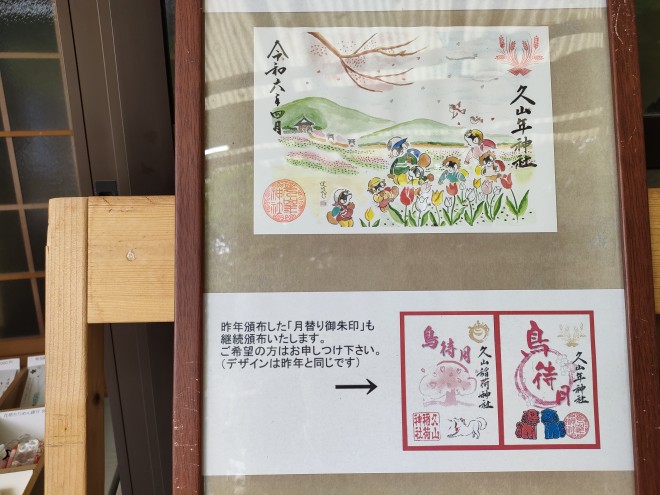 令和六年四月
久山年神社
昨年頒布した「月替り御朱印」も
継続頒布いたします。
ご希望の方はお申しつけ下さい。
（デザインは昨年と同じです）
鳥待月
久山稲荷神社
久山
稲荷
神社
鳥待月
久山年神社